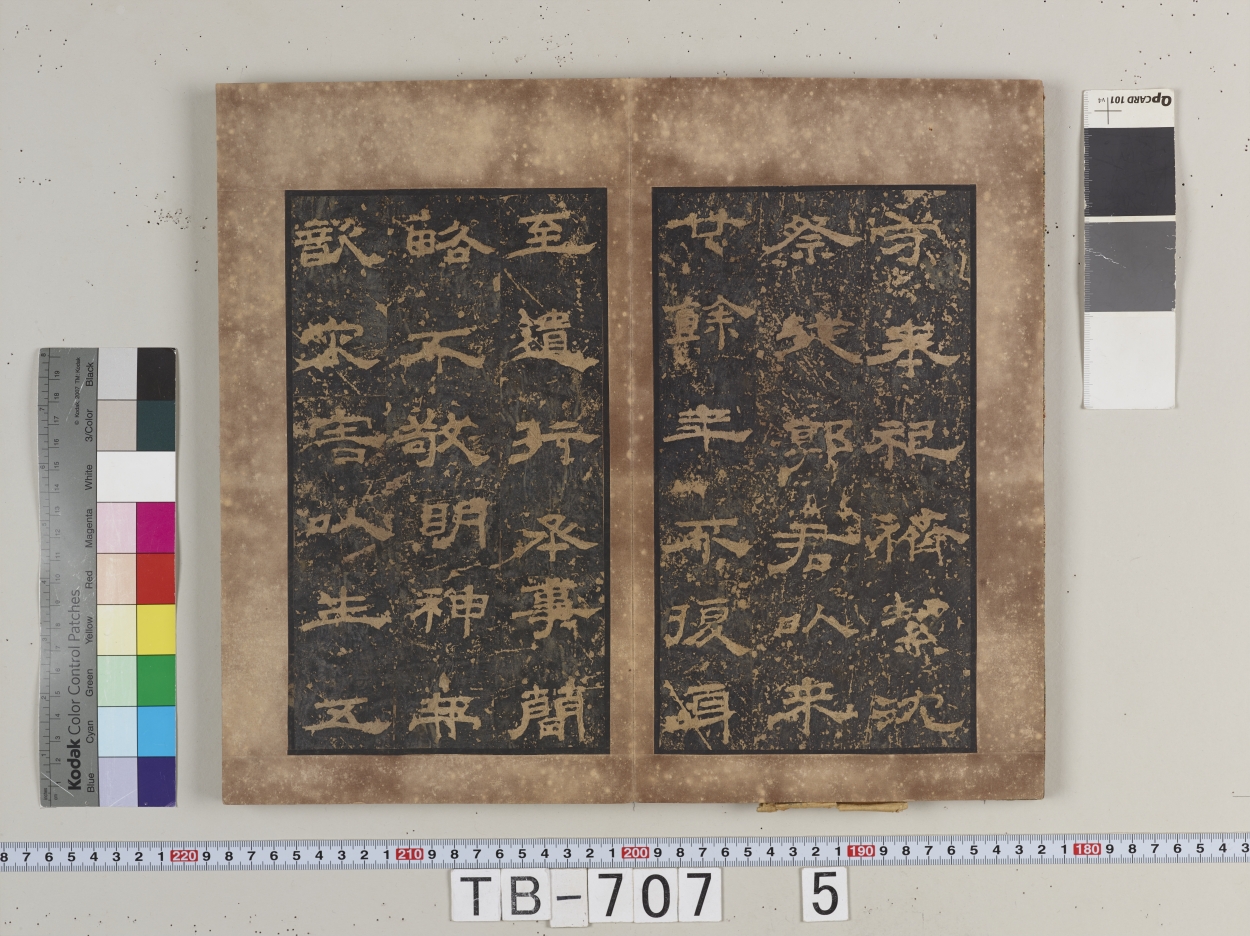 守奉祀齋絜沈
祭從郭君以来
廿餘年不復身
至遣行丞事簡
略不敬明神弗
歆灾害以生五
QPCARD 101 v4
Kodak Color Control Patches
© Kodak, 2007 TM: Kodak
Blue Cyan Green Yellow Red Magenta White 3/Color Black
8 7 6 5 4 3 2 1 220 9 8 7 6 5 4 3 2 1 210 9 8 7 6 5 4 3 2 1 200 9 8 7 6 5 4 3 2 1 190 9 8 7 6 5 4 3 2 1 180 9 8 7 6 5 4 3
TB-707 5